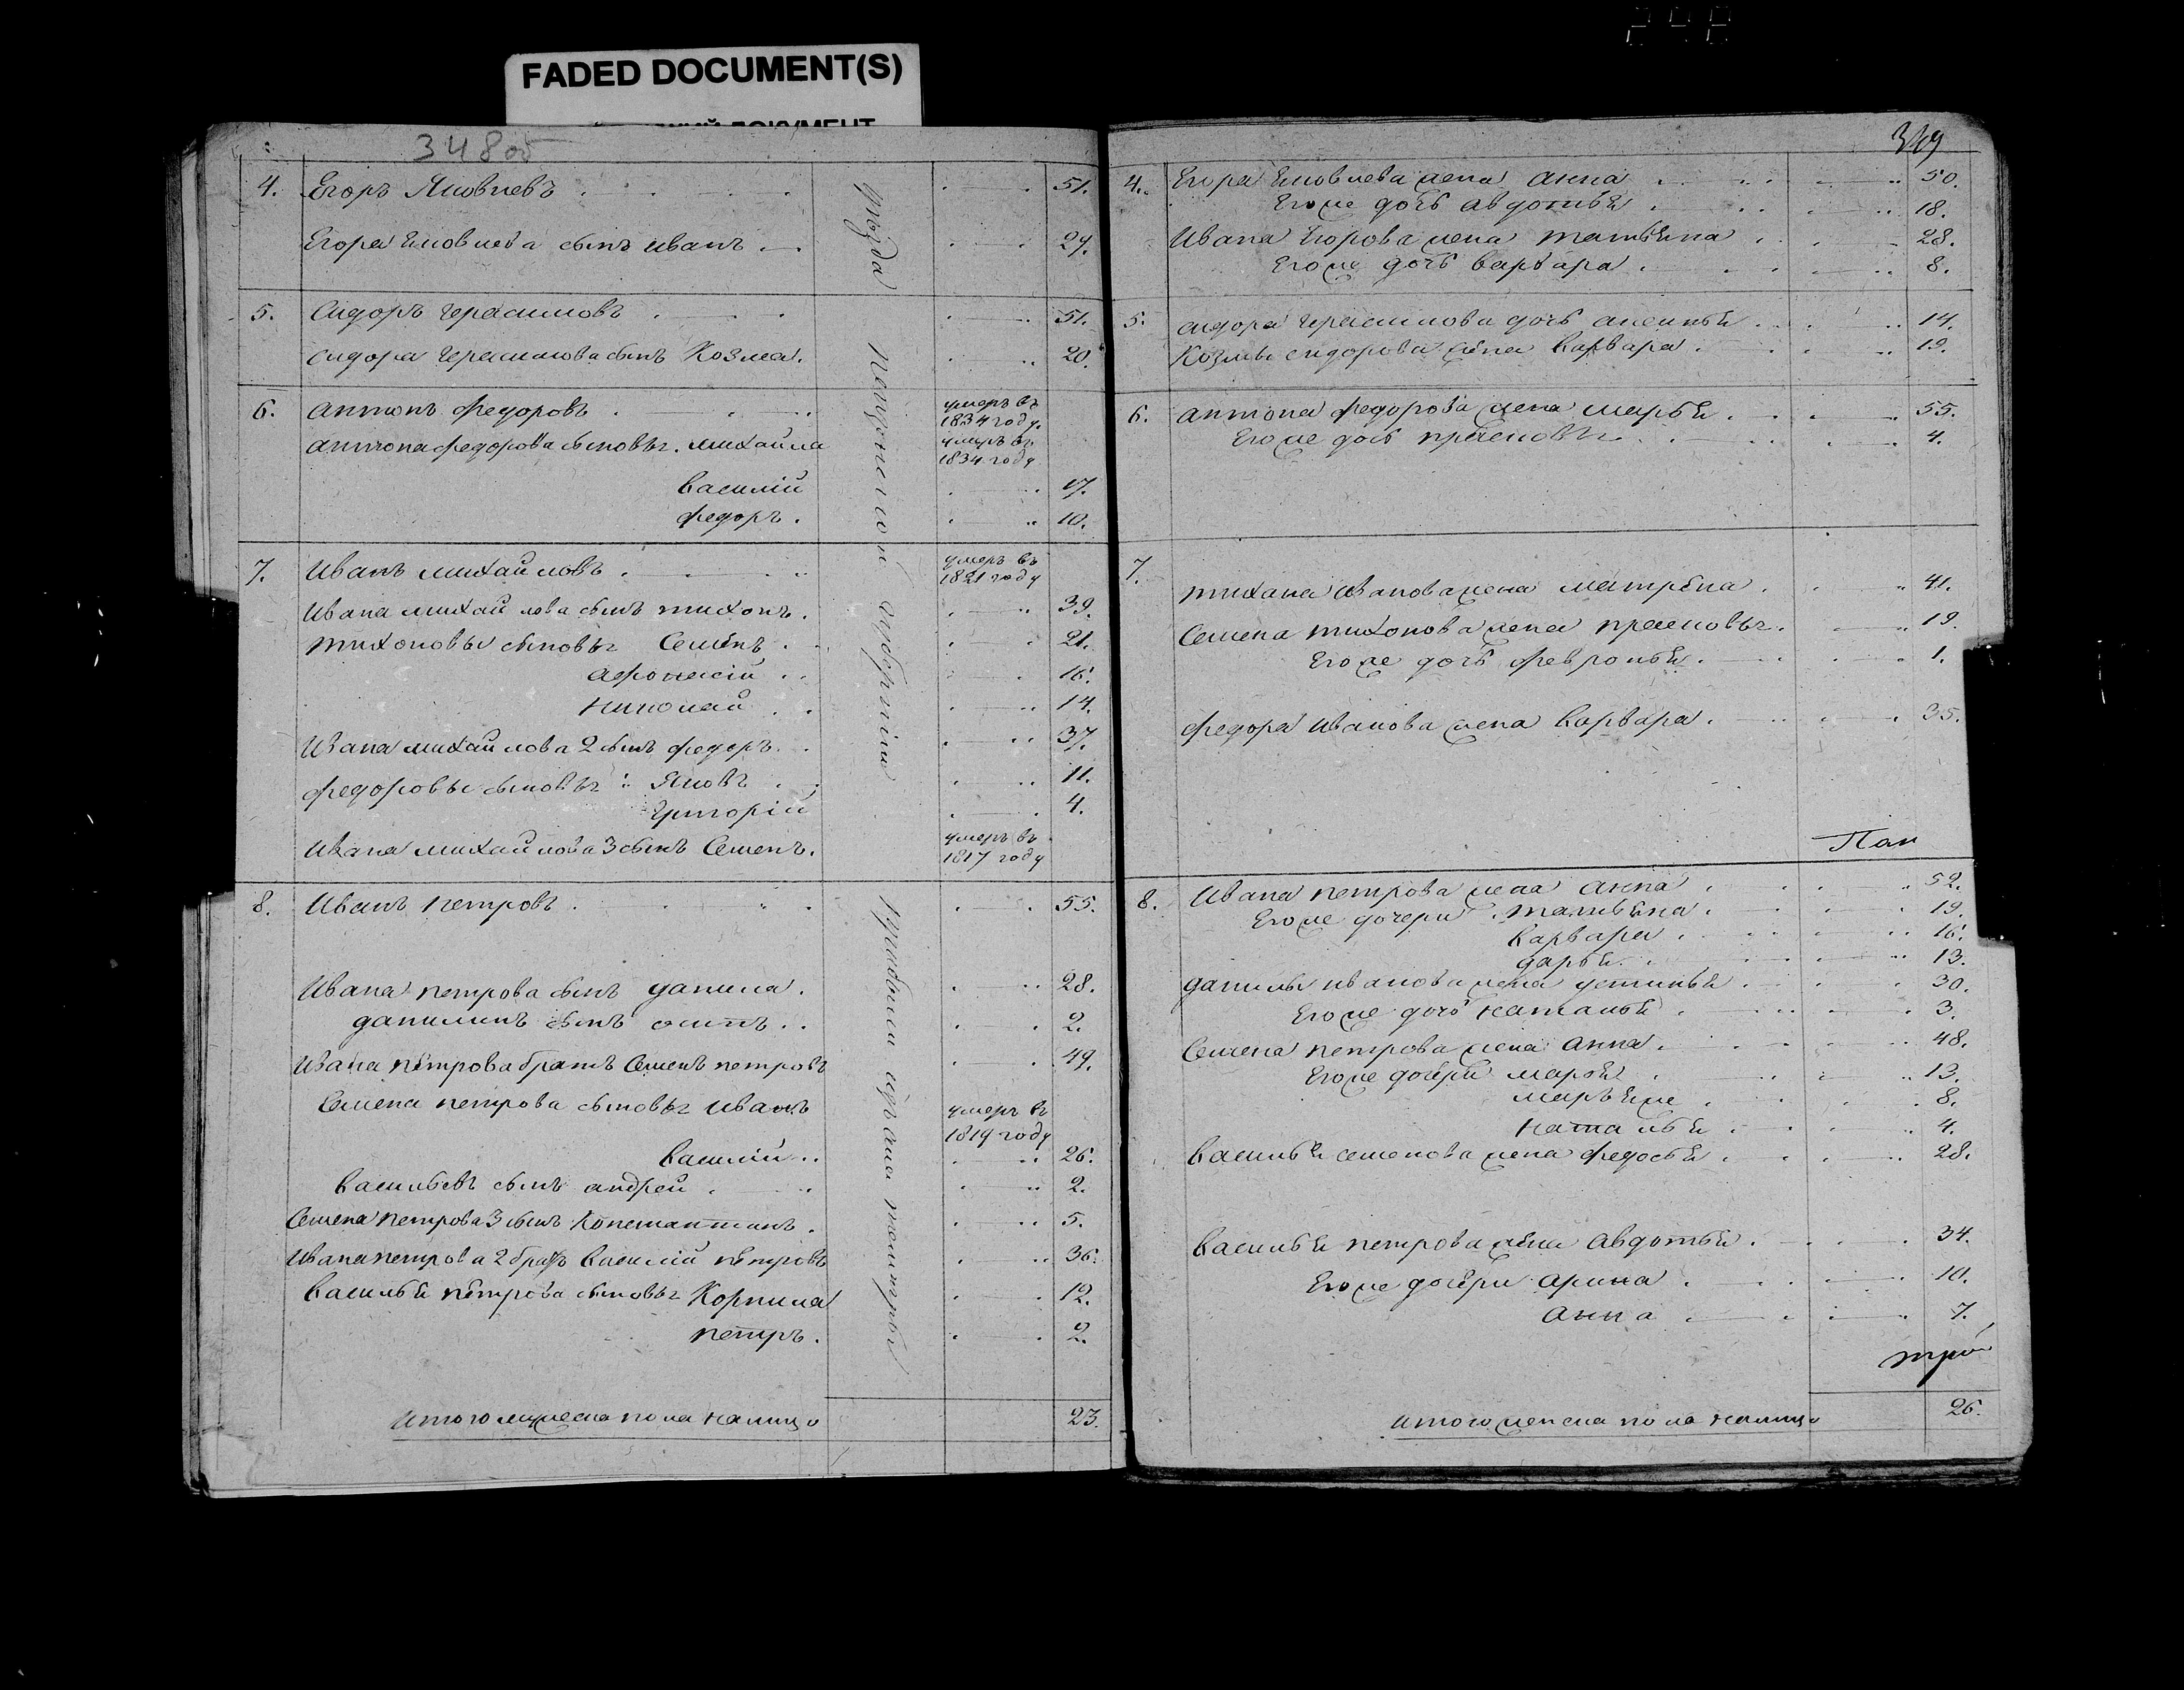 FADED DOCUMENT(S)
348 об
4. Егоръ Яковлевъ 51.
Егора Яковлева сынъ Иванъ 29.
5. Сидоръ Герасимовъ 51.
Сидора Герасимова сынъ Козма. 20.
6. Антонъ Федоровъ умеръ въ 1834 году.
Антона Федорова сыновьа. Михаила умеръ въ 1834 году
Василій 17.
Федоръ. 10.
7. Иванъ Михайловъ умеръ въ 1821 году
Ивана Михайлова сынъ Тихонъ. 39.
Тихоновы сыновьа Семенъ 21.
Афонасій 16.
Николай 14.
Ивана Михайлова 2 сынъ Федоръ 37.
Федоровы сыновьа: Яковъ 11.
Григорій 4.
Ивана Михайлова 3 сынъ Семенъ. умеръ въ 1817 году
8. Иванъ Петровъ 55.
Ивана Петрова сынъ Данила. 28.
Данилинъ сынъ Осипъ 2.
Ивана Петрова братъ Семенъ Петровъ 49.
Семена Петрова сыновьа Иванъ умеръ въ 1819 году
Василій 26.
Васильевъ сынъ Андрей 2.
Семена Петрова 3 сынъ Константинъ. 5.
Ивана Петрова 2 братъ Василій Петровъ 36.
Василья Петрова сыновьа Корнила 12.
Петръ. 2.
Итого мужеска пола на лицо 23.
уѣзда
губерніи
349
4. Егора Яковлева жена Анна 50.
Его же дочь Авдотья 18.
Ивана Егорова жена Татьяна 28.
Его же дочь Варвара 8.
5. Сидора Герасимова дочь Аксинья 14.
Козмы Сидорова жена Варвара 19.
6. Антона Федорова жена Марья 55.
Его же дочь Прасковья 4.
7.
Тихана Иванова жена Матрена 41.
Семена Тихонова жена Прасковья 19.
Его же дочь Февронья 1.
Федора Иванова жена Варвара 35.
Пап
8. Ивана Петрова жена Анна 52.
Его же дочери Татьяна 19.
Варвара 16.
Дарья 13.
Данилы Иванова жена Устинья 30.
Его же дочь Наталья 3.
Семена Петрова жена Анна 48.
Его же дочери Марья 13.
Марья же 8.
Наталья 4.
Василья Семенова жена Федосья 28.
Василья Петрова жена Авдотья 34.
Его же дочери Арина 10.
Анна 7.
Итого женска пола на лицо 26.